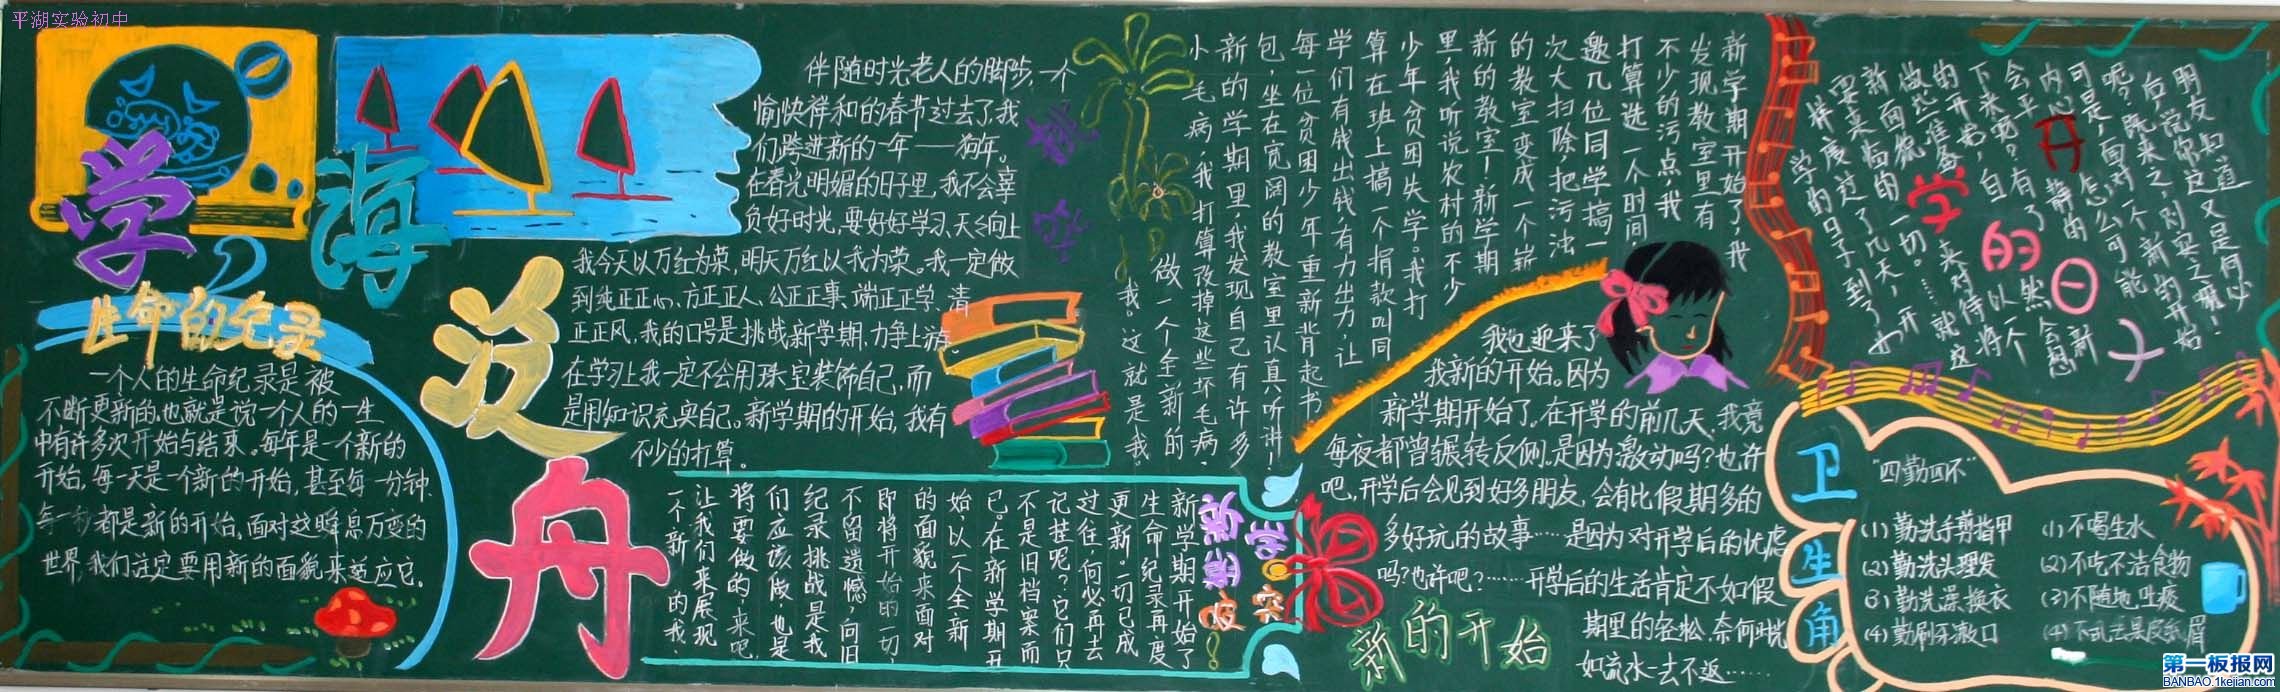 平湖实验初中
学海泛舟
生命的纪录
一个人的生命纪录是被
不断更新的,也就是说一个人的一生
中有许多次开始与结束。每年是一个新的
开始,每一天是一个新的开始,甚至每一分钟、
每一秒都是新的开始。面对这瞬息万变的
世界,我们注定要用新的面貌来适应它。
挑战
伴随时光老人的脚步,一个
愉快祥和的春节过去了,我
们跨进新的一年——狗年。
在春光明媚的日子里,我不会辜
负好时光,要好好学习、天天向上
我今天以万红为荣,明天万红以我为荣。我一定做
到纯正正心、方正正人、公正正事、端正正学、清
正正风,我的口号是挑战新学期,力争上游。
在学习上我一定不会用珠宝装饰自己,而
是用知识充实自己。新学期的开始,我有
不少的打算。
新学期开始了,我
发现教室里有
不少的污点,我
打算选一个时间,
邀几位同学搞一
次大扫除,把污浊
的教室变成一个崭
新的教室!新学期
里,我听说农村的不少
少年贫困失学。我打
算在班上搞一个捐款叫同
学们有钱出钱,有力出力,让
每一位贫困少年重新背起书
包,坐在宽阔的教室里认真听讲!
新的学期里,我发现自己有许多
小毛病,我打算改掉这些坏毛病,
做一个全新的
我。这就是我。
新学期开始了
生命纪录再度
更新。一切已成
过往,何必再去
记挂呢?它们只
不是旧档案而
已。在新学期开
始,以一个全新
的面貌来面对
即将开始的一切,
不留遗憾,向旧
纪录挑战是我
们应该做,也是
将要做的,来吧,
让我们来展现
一个新的我。
新的开始
我也迎来了
我新的开始。因为
新学期开始了。在开学的前几天,我竟
每夜都曾辗转反侧。是因为激动吗?也许
吧。开学后会见到好多朋友,会有比假期多的
多好玩的故事……是因为对开学后的忧虑
吗?也许吧?……开学后的生活肯定不如假
期里的轻松,奈何时光
如流水一去不返……
开学的日子
明友如道又是何必
后,说你这
呢?既来之,则安之嘛!
可是,面对一个新的开始
内心怎么可能
会平静的
下来呢?有了
的开始,白
做些准备
新面貌
要来临的一切。……就这
样度过了几天,开
学的日子到了
卫生角
“四勤四不”
(1)勤洗手剪指甲
(2)勤洗头理发
(3)勤洗澡换衣
(4)勤刷牙漱口
(1)不喝生水
(2)不吃不洁食物
(3)不随地吐痰
(4)不乱丢果皮纸屑
第一板报网
BANBAO.1kejian.com